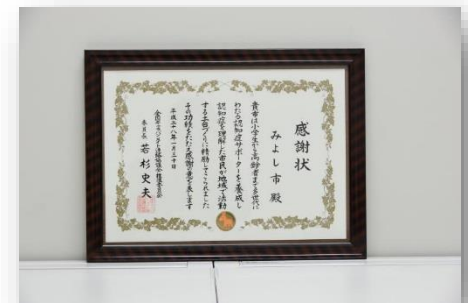 感謝状
みよし市 殿
貴市は小学生から高齢者まで全世代に
わたる認知症サポーターを養成し
認知症を理解した市民が地域で活動
する土台づくりに精励してこられました
その功績をたたえ感謝の意を表します
平成二十八年一月三十日
委員長 若杉史夫